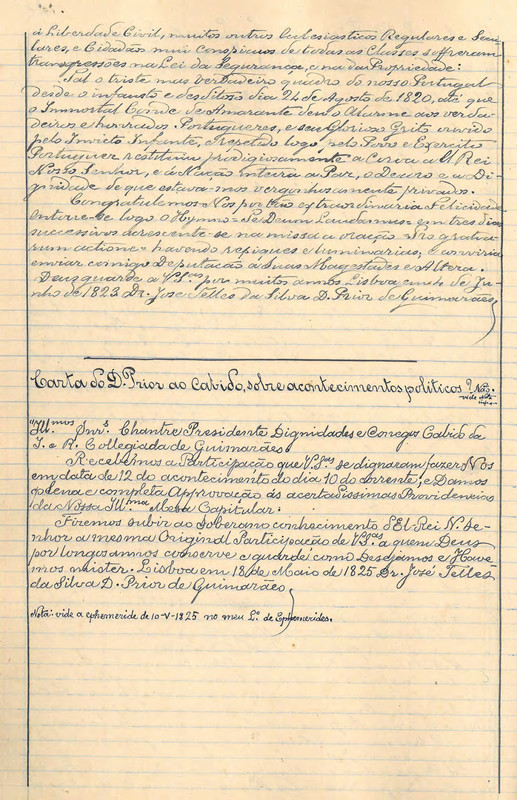 á Liberdade Civil, muitos outros Ecclesiasticos Regulares e Secu-
lares, e Cidadãos mui conspicuos de todas as Classes soffreram
transgressões na Lei da Segurança, e na da Propriedade:
Tal o triste mas verdadeiro quadro do nosso Portugal
desde o infausto e desditoso dia 24 de Agosto de 1820, até que
o Immortal Conde de Amarante deu o Alarme aos verda-
deiros e honrados Portuguezes, e seu Glorioso Grito ouvido
pelo Invicto Infante, Repetido logo, pelo Povo e Exercito
Portuguez restituiu prodigiosamente a Coroa a El Rei
Nosso Senhor, e á Nação inteira a Paz, o Decoro e a Di-
gnidade de que estava-mos vergonhosamente privados.
Congratulemos-Nós por tão extraordinaria Felicidade
entorre-se logo o Hymno = Te Deum Laudamus = em tres dias
successivos acrescente-se na missa a oração = Pro gratia-
rum actione = havendo repiques e luminarias, e conviria
enviar comigo Deputação á Suas Magestades e Alteza.
Deus guarde a V.S.as por muitos annos Lisboa de Ju-
nho de 1823 Dr. José Telles da Silva D. Prior de Guimarães
Carta do D. Prior ao Cabido, sobre acontecimentos politicos
vide
"Ill.mos Snr.s Chantre Presidente Dignidades e Conegos Cabido da
I. e R. Collegiada de Guimarães
Recebemos a Participação que V.S.as se dignaram fazer Nos
em data de 12 do acontecimento do dia 10 do corrente, e Damos
plena e completa Approvação ás acertadissimas Providencias
da Nossa Ill.ma Mesa Capitular.
Fizemos subir ao Soberano conhecimento d'El-Rei N. Se-
nhor a mesma Original Participação de V.S.as a quem Deus
por longos annos conserve e guarde como Desejamos e Have-
mos mister. Lisboa em 18 de Maio de 1825 Dr. José Telles
da Silva D. Prior de Guimarães
Nota: vide a ephemeride de 10-V-1825 no meu L.o de Ephemerides.